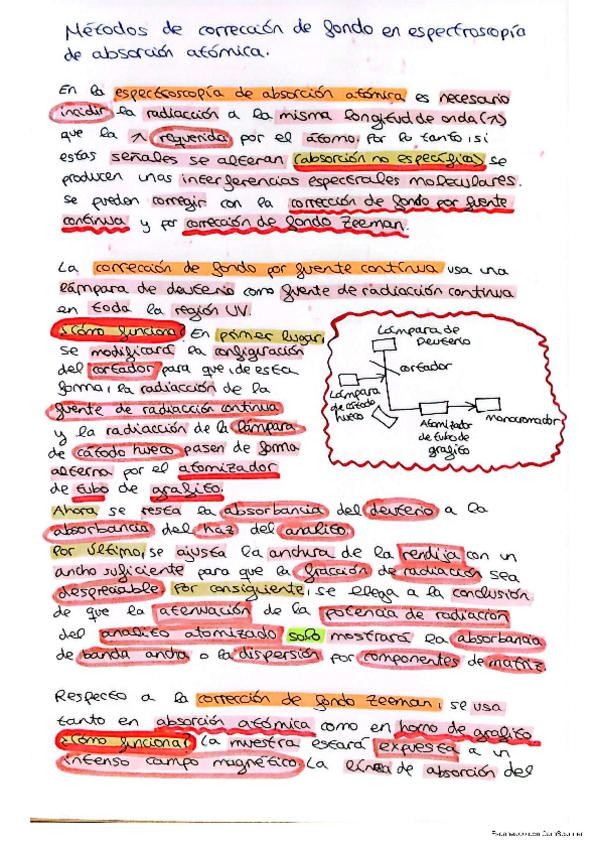 Métodos de corrección de fondo en espectroscopía
de absorción atómica.
En la espectroscopía de absorción atómica es necesario
incidir la radiación a la misma longitud de onda (λ)
que la λ requerida por el átomo, por lo tanto, si
estas señales se alteran (absorción no específica) se
producen unas interferencias espectrales moleculares.
Se pueden corregir con la corrección de fondo por fuente
continua y por corrección de fondo Zeeman.
La corrección de fondo por fuente continua usa una
lámpara de deuterio como fuente de radiación continua
en toda la región UV.
¿Cómo funciona? En primer lugar,
se modificará la configuración
del cortador para que, de esta
forma, la radiación de la
fuente de radiación continua
y la radiación de la lámpara
de cátodo hueco pasen de forma
alterna por el atomizador
de tubo de grafito.
Lámpara de
Deuterio
cortador
Lámpara
de cátodo
hueco
Atomizador
de tubo de
grafito
monocromador
Ahora se resta la absorbancia del deuterio a la
absorbancia del haz del analito.
Por último, se ajusta la anchura de la rendija con un
ancho suficiente para que la fracción de radiación sea
despreciable. Por consiguiente, se llega a la conclusión
de que la atenuación de la potencia de radiación
del analito atomizado solo mostrará la absorbancia
de banda ancha o la dispersión por componentes de matriz.
Respecto a la corrección de fondo Zeeman, se usa
tanto en absorción atómica como en horno de grafito
¿Cómo funciona? La muestra estará expuesta a un
intenso campo magnético. La línea de absorción del
Escaneado con CamScanner